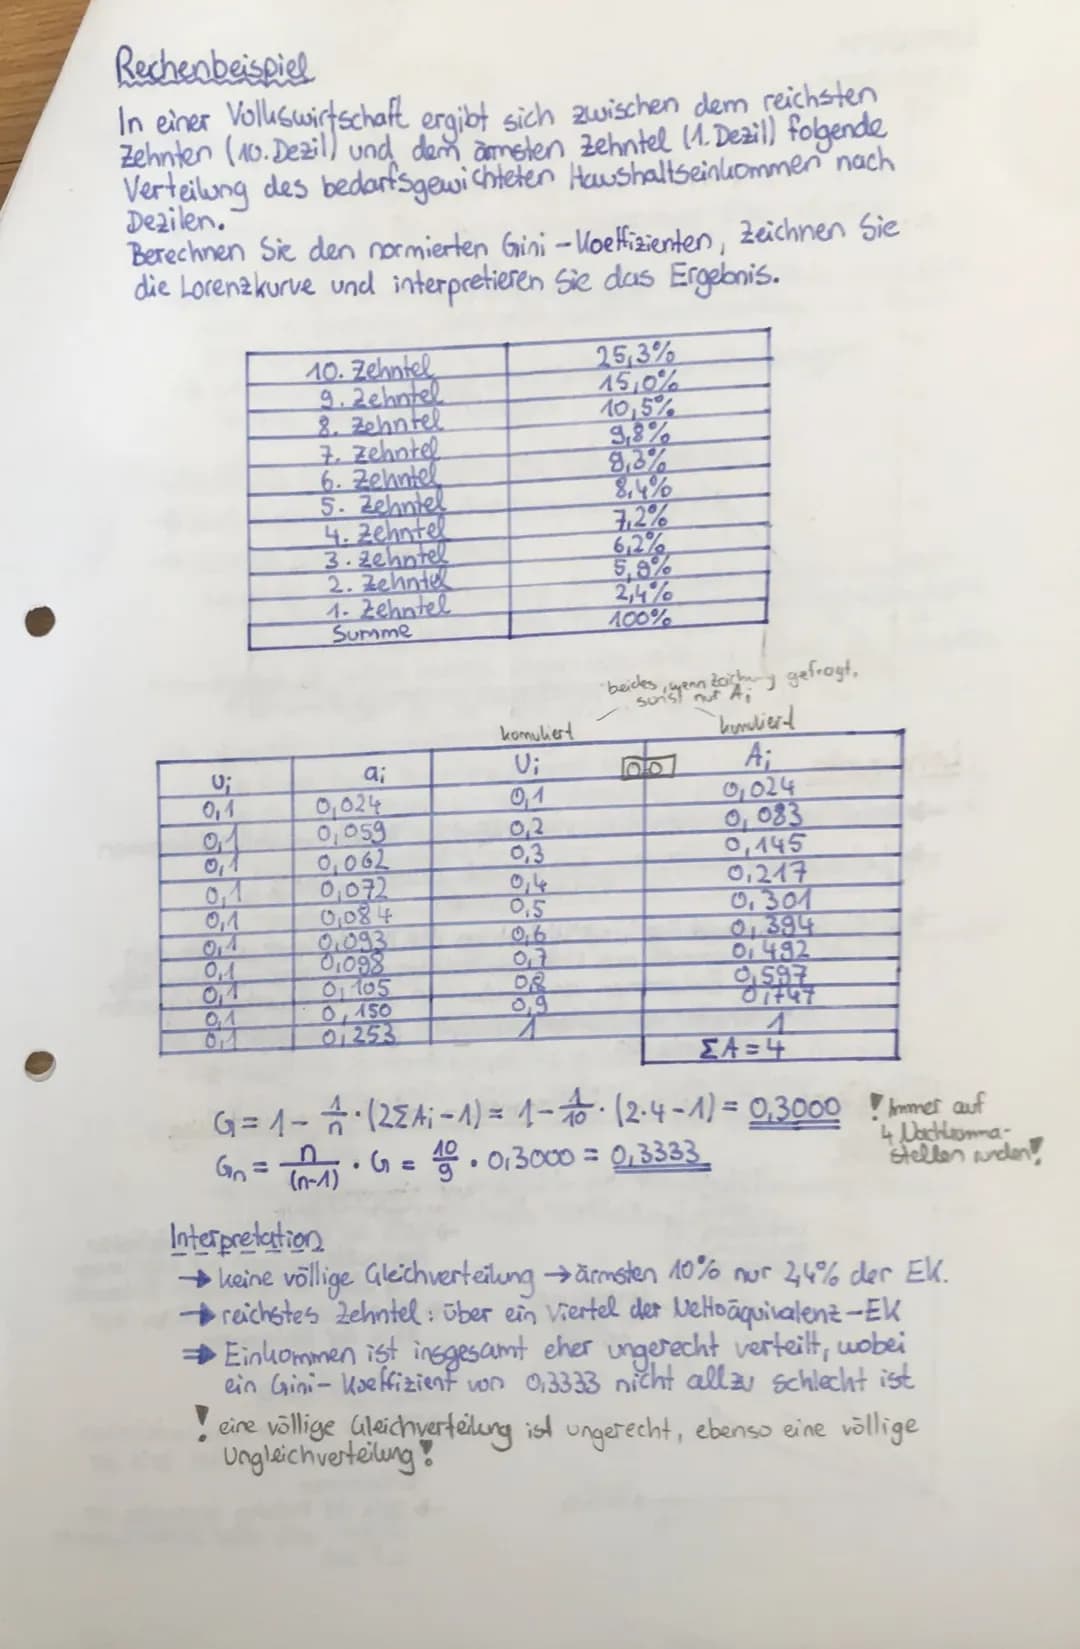 Rechenbeispiel
In einer Volkswirtschaft ergibt sich zwischen dem reichsten
Zehnten (10. Dezil) und dem ärmsten Zehntel (1. Dezil) folgende
Verteilung des bedarfsgewichteten Haushaltseinkommen nach
Dezilen.
Berechnen Sie den normierten Gini-Koeffizienten, zeichnen Sie
die Lorenzkurve und interpretieren Sie das Ergebnis.
10. Zehntel 25,3%
9. Zehntel 15,0%
8. Zehntel 10,5%
7. Zehntel 9,8%
6. Zehntel 9,3%
5. Zehntel 8,4%
4. Zehntel 7,2%
3. Zehntel 6,2%
2. Zehntel 5,9%
1. Zehntel 2,4%
Summe 100%
beides, wenn Zeichnung gefragt,
sonst nur Ai
komuliert kumuliert
Ui ai Ui 0,0 Ai
0,1 0,024 0,1 0,024
0,1 0,059 0,2 0,083
0,1 0,062 0,3 0,145
0,1 0,072 0,4 0,217
0,1 0,084 0,5 0,301
0,1 0,093 0,6 0,394
0,1 0,098 0,7 0,492
0,1 0,105 0,8 0,597
0,1 0,150 0,9 0,747
0,1 0,253 1 1
ΣA = 4
G = 1 - 1/n · (2ΣAi - 1) = 1 - 1/10 · (2·4 - 1) = 0,3000
! Immer auf
4 Nachkomma-
stellen runden!
Gn = n/(n-1) · G = 10/9 · 0,3000 = 0,3333
Interpretation
→ keine völlige Gleichverteilung → ärmsten 10% nur 2,4% der EK.
→ reichstes Zehntel: über ein Viertel der Nettoäquivalenz-EK
⇒ Einkommen ist insgesamt eher ungerecht verteilt, wobei
ein Gini-Koeffizient von 0,3333 nicht allzu schlecht ist
! eine völlige Gleichverteilung ist ungerecht, ebenso eine völlige
Ungleichverteilung!